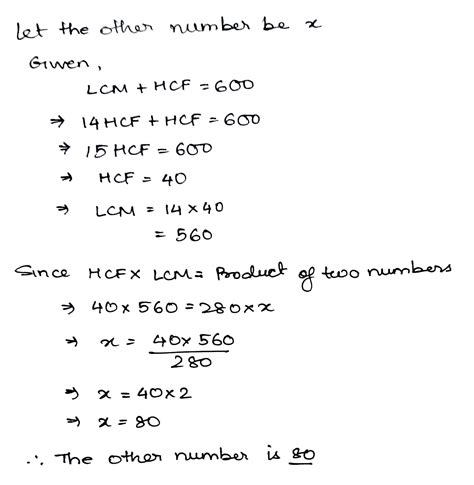 Let the other number be x
Given,
LCM + HCF = 600
⇒ 14 HCF + HCF = 600
⇒ 15 HCF = 600
⇒ HCF = 40
⇒ LCM = 14 × 40
= 560
Since HCF × LCM = Product of two numbers
⇒ 40 × 560 = 280 × x
⇒ x = 40 × 560 / 280
⇒ x = 40 × 2
⇒ x = 80
∴ The other number is 80